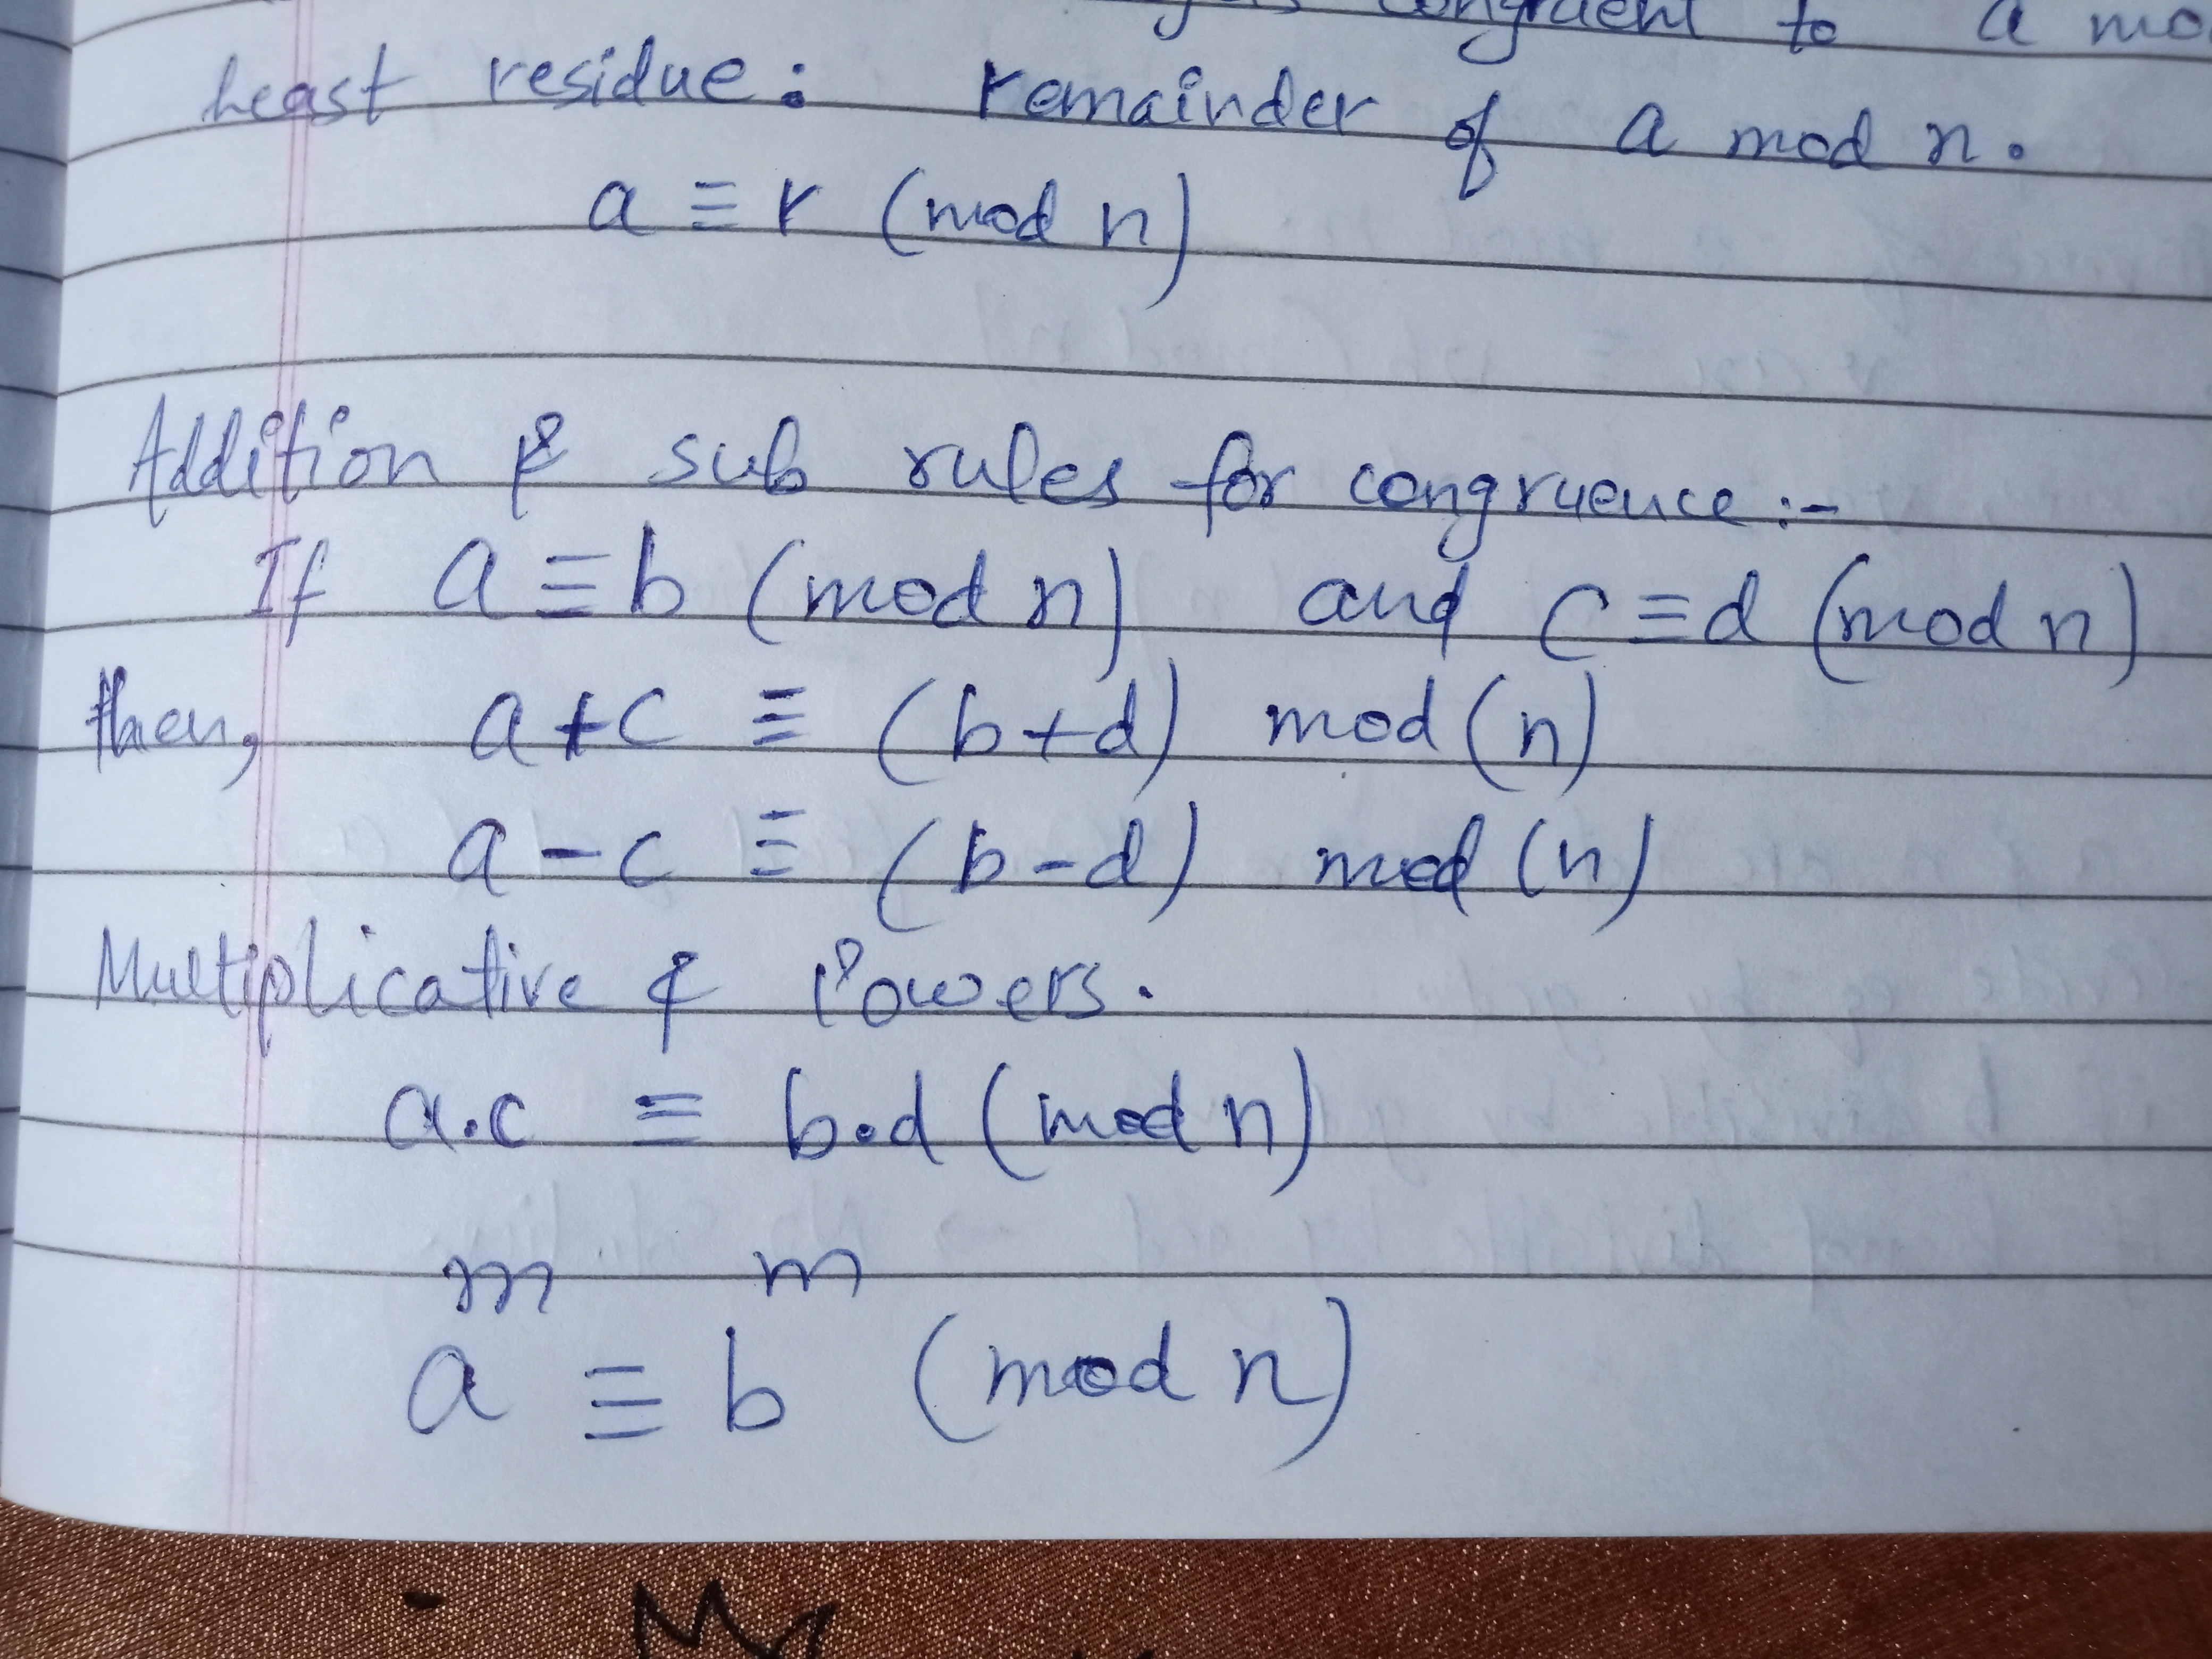 congruent to a
Least residue: remainder of a mod n.
a ≡ r (mod n)
Addition & sub rules for congruence:-
If a ≡ b (mod n) and c ≡ d (mod n)
then, a+c ≡ (b+d) mod (n)
a-c ≡ (b-d) mod (n)
Multiplicative & Powers.
a.c ≡ b.d (mod n)
m m
a ≡ b (mod n)